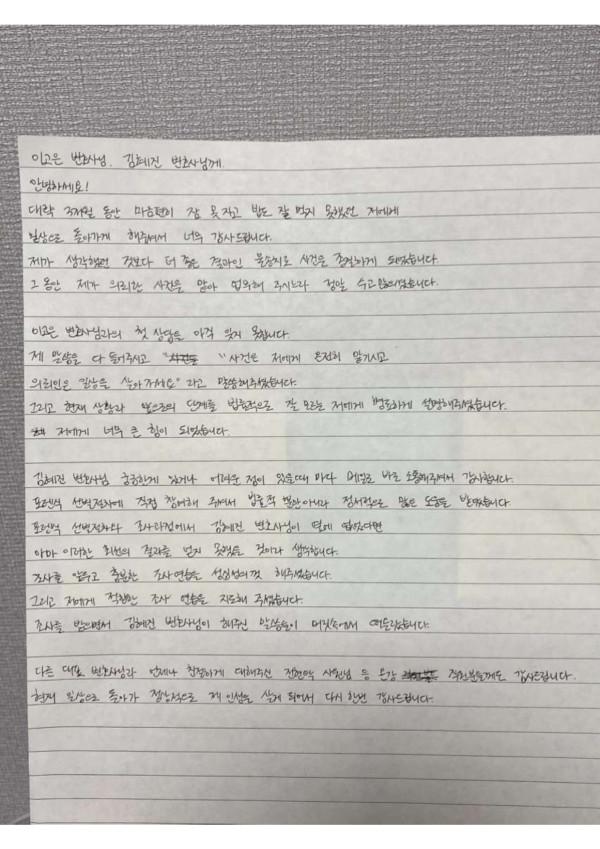 이고은 변호사님. 김혜진 변호사님께.
안녕하세요!
대략 3개월 동안 마음편히 잠 못 자고 밥도 잘 먹지 못했던 저에게
일상으로 돌아가게 해주셔서 너무 감사드립니다.
제가 생각했던 것보다 더 좋은 결과인 불송치로 사건을 종결하게 되었습니다.
그 동안 제가 의뢰한 사건을 맡아 변호해 주시느라 정말 수고 많으셨습니다.
이고은 변호사님과의 첫 상담을 아직 잊지 못합니다.
제 말씀을 다 들어주시고 "사건은 저에게 온전히 맡기시고
의뢰인은 일상을 살아가세요" 라고 말씀해주셨습니다.
그리고 현재 상황과 앞으로의 단계를 법률적으로 잘 모르는 저에게 명료하게 설명해주셨습니다.
저에게 너무 큰 힘이 되었습니다.
김혜진 변호사님 궁금한게 있거나 어려운 점이 있을때 마다 메일로 바로 소통해주셔서 감사합니다.
포렌식 선별절차에 직접 참여해 주셔서 법률적 뿐만아니라 정서적으로 많은 도움을 받았습니다.
포렌식 선별절차와 조사과정에서 김혜진 변호사님이 옆에 없었다면
아마 이러한 최선의 결과를 얻지 못했을 것이라 생각합니다.
조사를 앞두고 충분한 조사연습을 성심성의껏 해주셨습니다.
그리고 저에게 적합한 조사 연습을 지도해 주셨습니다.
조사를 받으면서 김혜진 변호사님이 해주신 말씀들이 머릿속에서 떠올랐습니다.
다른 대표 변호사님과 언제나 친절하게 대해주신 사원님 등 온강 직원분들께도 감사드립니다.
현재 일상으로 돌아가 정상적으로 제 인생을 살게 되어서 다시 한번 감사드립니다.